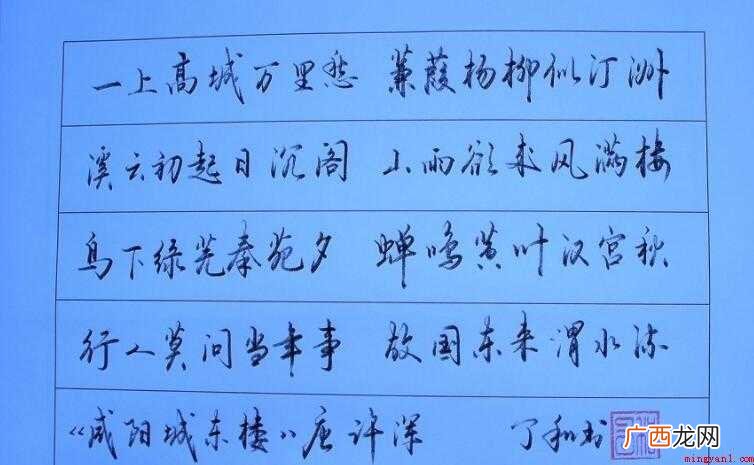 一上高城万里愁 蒹葭杨柳似汀洲
溪云初起日沉阁 山雨欲来风满楼
鸟下绿芜秦苑夕 蝉鸣黄叶汉宫秋
行人莫问当年事 故国东来渭水流
《咸阳城东楼》唐 许浑 丁和书
广西龙网
mingyan1.com